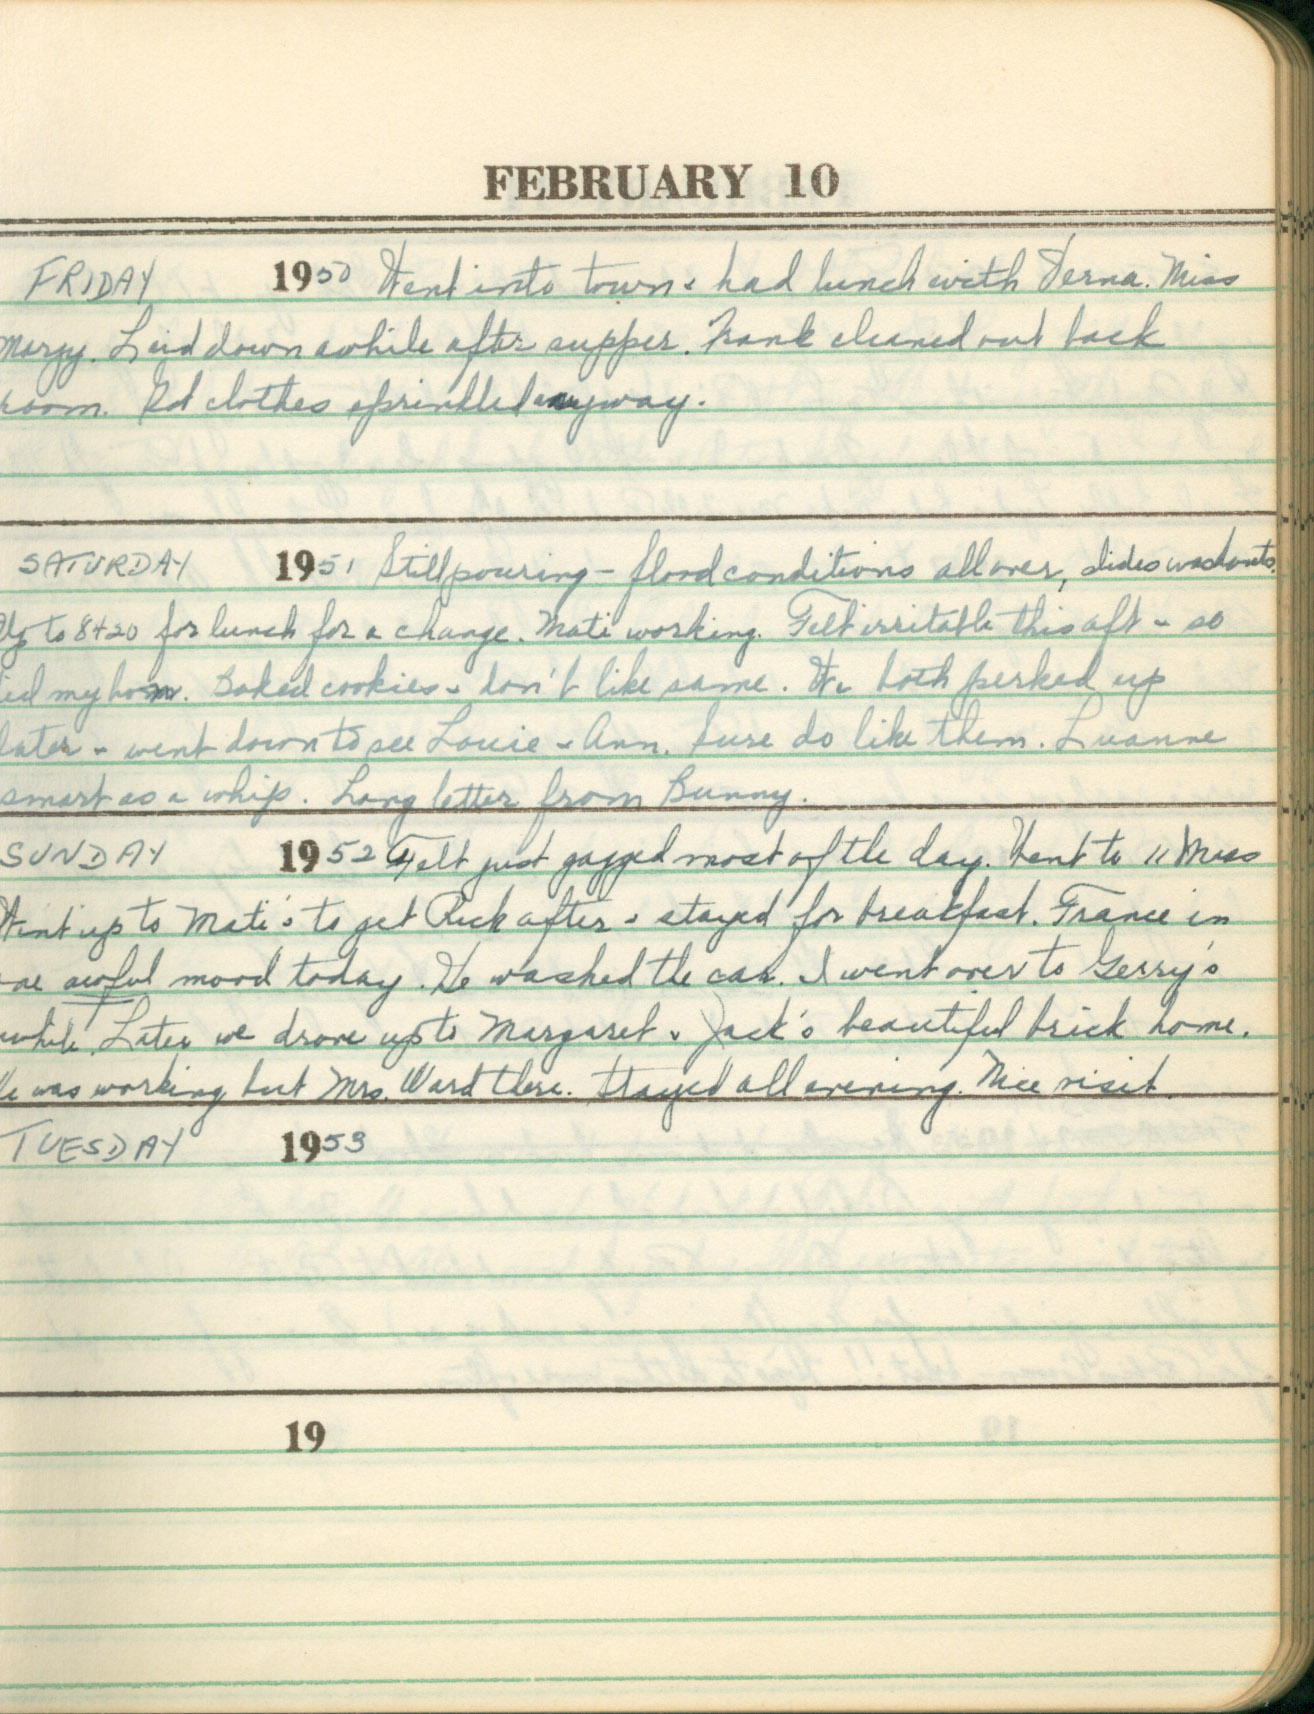 FEBRUARY 10
FRIDAY 1950 Went into town & had lunch with Verna. Miss
Margy. Laid down awhile after supper. Frank cleaned out back
room. Rd clothes sprinkled anyway.
SATURDAY 1951 Still pouring - flood conditions all over, slides washouts.
Up to 8420 for lunch for a change. Mati working. Felt irritable this aft - so
my horn. Baked cookies & don't like same. We both perked up
later - went down to see Louie & Ann. Sure do like them. Luanne
smart as a whip. Long letter from Bunny.
SUNDAY 1952 Felt just gagged most of the day. Went to 11 Mass
Went up to Mati's to get Rick after & stayed for breakfast. Francie in
one awful mood today. He washed the car. I went over to Gerry's
while. Later we drove up to Margaret & Jack's beautiful brick home.
He was working but Mrs. Ward there. Stayed all evening. Nice visit.
TUESDAY 1953
19